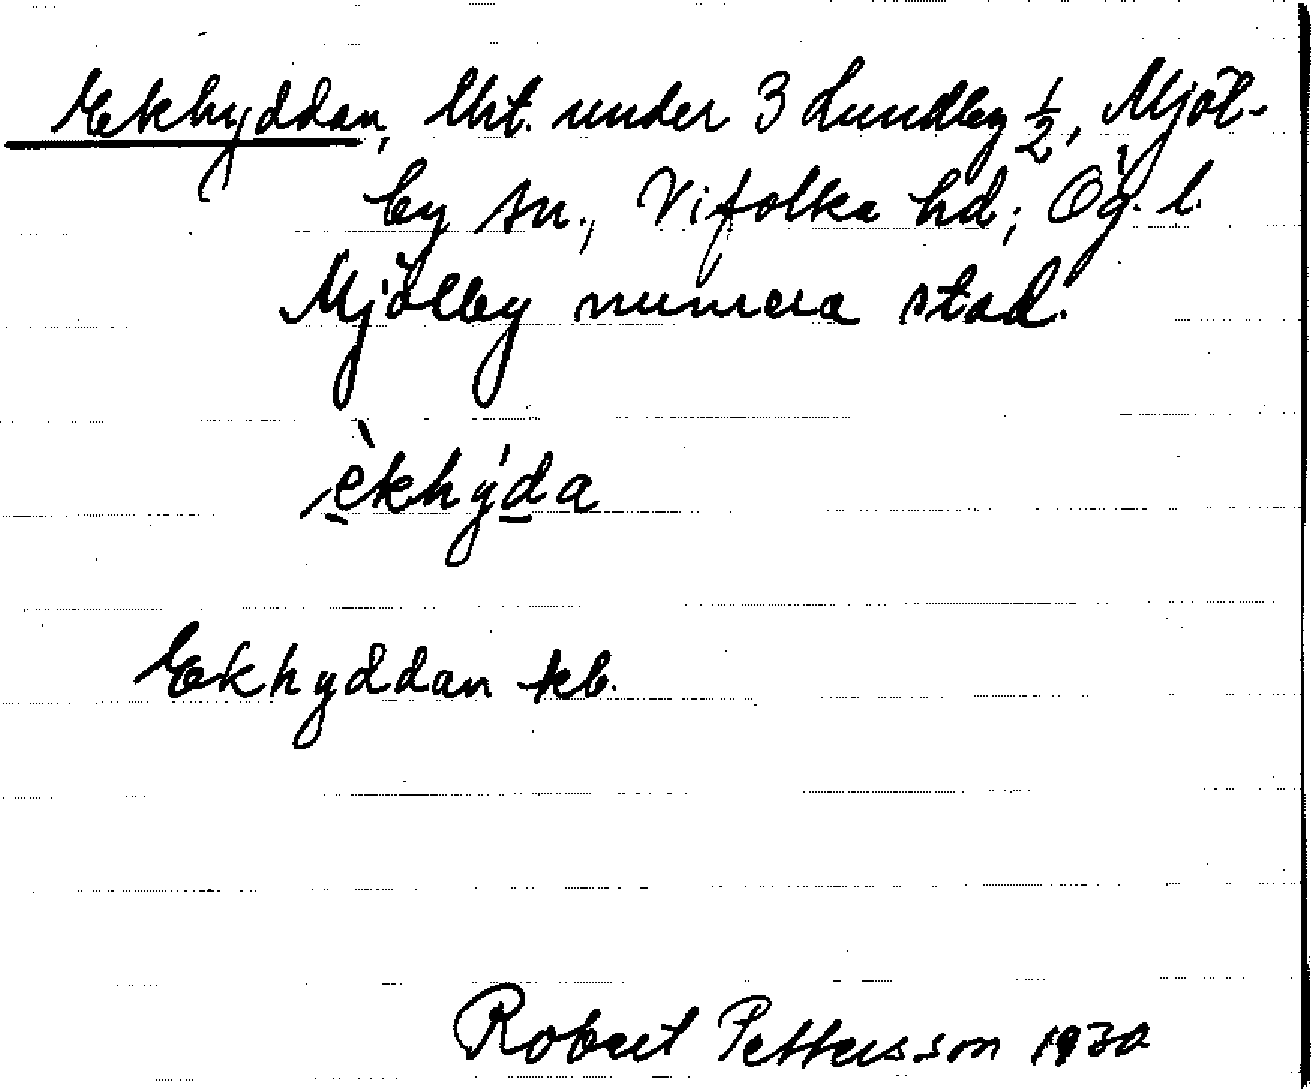 Ekhyddan, lht. under 3 Lundby 1/2, Mjöl-
by sn., Vifolka hd; Ög. l.
Mjölby numera stad.
èkhýda
Ekhyddan kb.
Robert Pettersson 1930